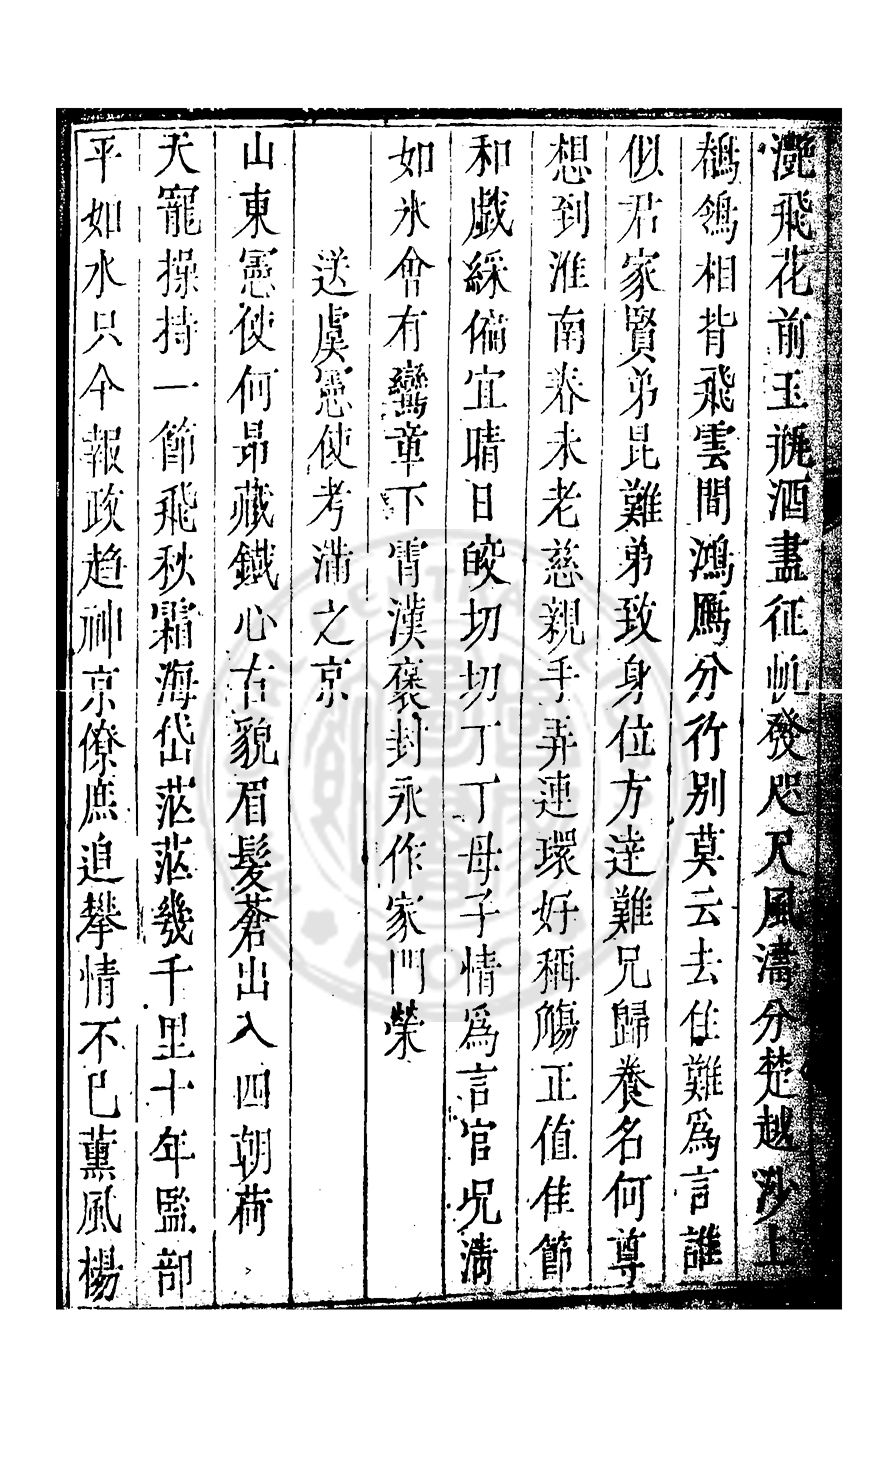 灔飛花前玉瓶酒盡征帆發咫尺風濤分楚越沙上
鶺鴒相背飛雲間鴻鴈分行別莫云去住難為言誰
似君家賢弟昆難弟致身位方達難兄歸養名何尊
想到淮南春未老慈親手弄連環好稱觴正值佳節
和戲綵偏宜晴日皎切切丁丁母子情為言官況清
如氷會有鸞章下霄漢褒封永作家門榮
送虞憲使考滿之京
山東憲使何昻藏鐵心古貌眉髮蒼出入四朝荷
天寵操持一節飛秋霜海岱茫茫幾千里十年監部
平如水只今報政趋神京僚庶追攀情不已薰風楊